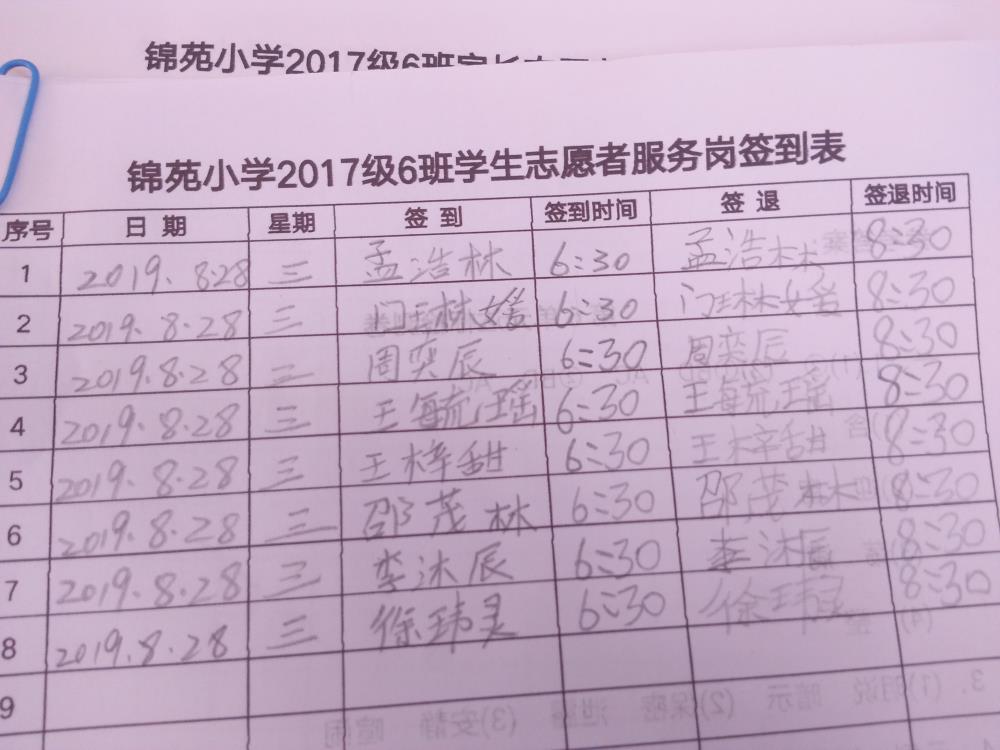 锦苑小学2017级6班
锦苑小学2017级6班学生志愿者服务岗签到表
序号 日期 星期 签到 签到时间 签退 签退时间
1 2019.8.28 三 孟浩林 6:30 孟浩林 8:30
2 2019.8.28 三 门珏林媛 6:30 门珏林媛 8:30
3 2019.8.28 三 周奕辰 6:30 周奕辰 8:30
4 2019.8.28 三 王毓瑶 6:30 王毓瑶 8:30
5 2019.8.28 三 王梓甜 6:30 王梓甜 8:30
6 2019.8.28 三 邵茂林 6:30 邵茂林 8:30
7 2019.8.28 三 李沐辰 6:30 李沐辰 8:30
8 2019.8.28 三 徐玮灵 6:30 徐玮灵 8:30
9